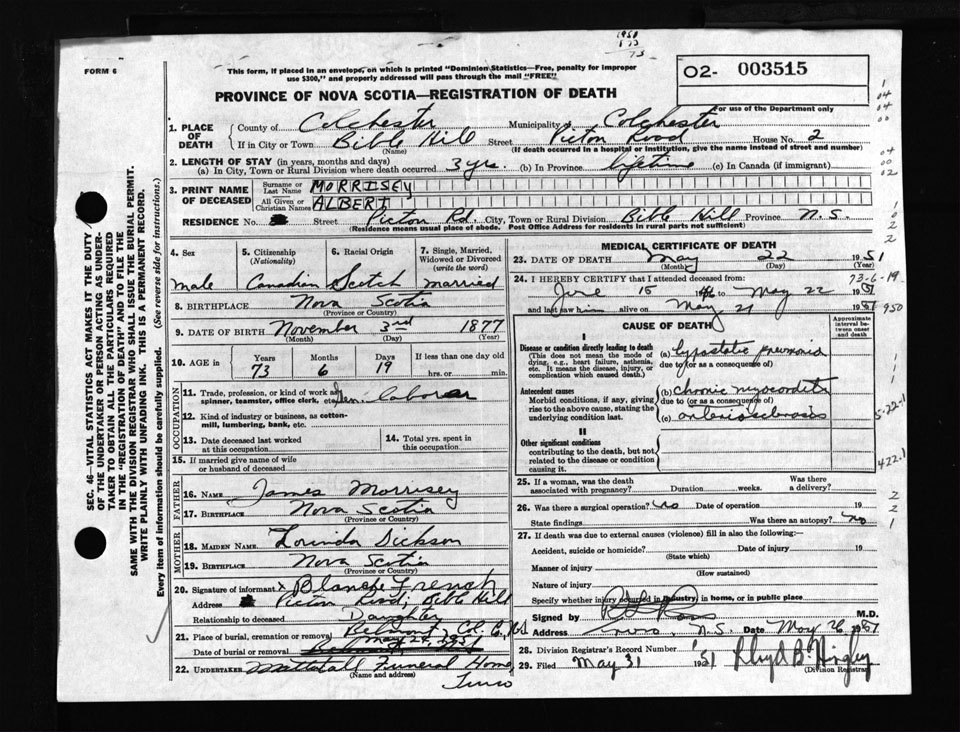 1951
1 73
73
FORM 6
This form, if placed in an envelope, on which is printed "Dominion Statistics—Free, penalty for improper
use $300," and properly addressed will pass through the mail "FREE"
02- 003515
PROVINCE OF NOVA SCOTIA—REGISTRATION OF DEATH
For use of the Department only
1. PLACE OF DEATH
County of Colchester Municipality of Colchester
If in City or Town Bible Hill Street Picton Road House No. 2
(Name) (If death occurred in a hospital or institution, give the name instead of street and number)
2. LENGTH OF STAY (in years, months and days)
(a) In City, Town or Rural Division where death occurred 3 yrs. (b) In Province lifetime (c) In Canada (if immigrant)
3. PRINT NAME OF DECEASED
Surname or Last Name MORRISEY
All Given or Christian Names ALBERT
RESIDENCE No. Street Picton Rd. City, Town or Rural Division Bible Hill Province N.S.
(Residence means usual place of abode. Post Office Address for residents in rural parts not sufficient)
4. Sex
male
5. Citizenship (Nationality)
Canadian
6. Racial Origin
Scotch
7. Single, Married, Widowed or Divorced (write the word)
married
8. BIRTHPLACE Nova Scotia
(Province or Country)
9. DATE OF BIRTH November 3rd 1877
(Month) (Day) (Year)
10. AGE in
Years Months Days If less than one day old
73 6 19 hrs. or min.
OCCUPATION
11. Trade, profession, or kind of work as
spinner, teamster, office clerk, etc. Gen. laborer
12. Kind of industry or business, as cotton-
mill, lumbering, bank, etc.
13. Date deceased last worked
at this occupation
14. Total yrs. spent in
this occupation
15. If married give name of wife
or husband of deceased
FATHER
16. NAME James Morrisey
17. BIRTHPLACE Nova Scotia
(Province or Country)
MOTHER
18. MAIDEN NAME Lorinda Dickson
19. BIRTHPLACE Nova Scotia
(Province or Country)
20. Signature of informant x Blanche French
Address Picton Road, Bible Hill
Relationship to deceased Daughter
21. Place of burial, cremation or removal Belmont, Col. Co, N.S
Date of burial or removal May 24, 1951
22. UNDERTAKER Mattatall Funeral Home,
(Name and address)
Truro
MEDICAL CERTIFICATE OF DEATH
23. DATE OF DEATH May 22 1951
(Month) (Day) (Year)
73-6-19
24. I HEREBY CERTIFY that I attended deceased from:
June 15 to May 22 1951
and last saw him alive on May 21 1951
950
CAUSE OF DEATH
Approximate interval between onset and death
I
Disease or condition directly leading to death
(This does not mean the mode of
dying, e.g., heart failure, asthenia,
etc. It means the disease, injury, or
complication which caused death.)
(a) hypostatic pneumonia
due to (or as a consequence of)
Antecedent causes
Morbid conditions, if any, giving
rise to the above cause, stating the
underlying condition last.
(b) chronic myocarditis
due to (or as a consequence of)
(c) arteriosclerosis
5-22-1
II
Other significant conditions
contributing to the death, but not
related to the disease or condition
causing it.
422.1
25. If a woman, was the death
associated with pregnancy? Duration weeks. Was there a delivery?
26. Was there a surgical operation? No Date of operation 19
State findings Was there an autopsy? no
27. If death was due to external causes (violence) fill in also the following:—
Accident, suicide or homicide? Date of injury 19
(State which)
Manner of injury
(How sustained)
Nature of injury
Specify whether injury occurred in industry, in home, or in public place
Signed by M.D.
Address Truro, N.S. Date May 26 1951
28. Division Registrar's Record Number
29. Filed May 31 1951 Lloyd B. Hingley
(Division Registrar)
SEC. 46—VITAL STATISTICS ACT MAKES IT THE DUTY
OF THE UNDERTAKER OR PERSON ACTING AS UNDER-
TAKER TO OBTAIN ALL THE PARTICULARS REQUIRED
IN THE "REGISTRATION OF DEATH" AND TO FILE THE
SAME WITH THE DIVISION REGISTRAR WHO SHALL ISSUE THE BURIAL PERMIT.
WRITE PLAINLY WITH UNFADING INK. THIS IS A PERMANENT RECORD.
Every item of information should be carefully supplied. (See reverse side for instructions.)